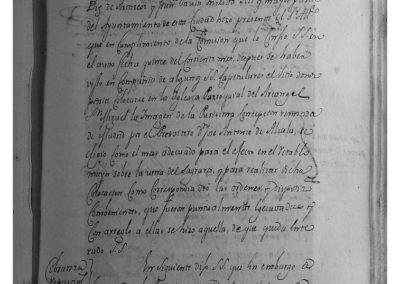 del Ayuntamiento de esta Ciudad hizo presente el
que en cumplimiento de la Comision que le Confio S.S. en
el auto fecha quince del corriente mes, despues de haber
visto en compañia de algunos S.S. Capitulares el sitio donde
podria Colocarse en la Iglesia Parroquial del Arcangel
Sn Miguel la Imagen de la Purisima Concepcion
por el Presvitero Dn Jose Antonio de Alcala, se
eligio como el mas adecuado para el efecto en el Retablo
mayor sobre la urna del Sagrario, y para realizar dicha
Colocacion como correspondia dio las ordenes y disposiz
Conbenientes, que fueron puntualmente egecutadas y
con arreglo a ellas se hizo aquella, de que queda ente
rado S.S.
En siguiente dijo S.S. que sin embargo